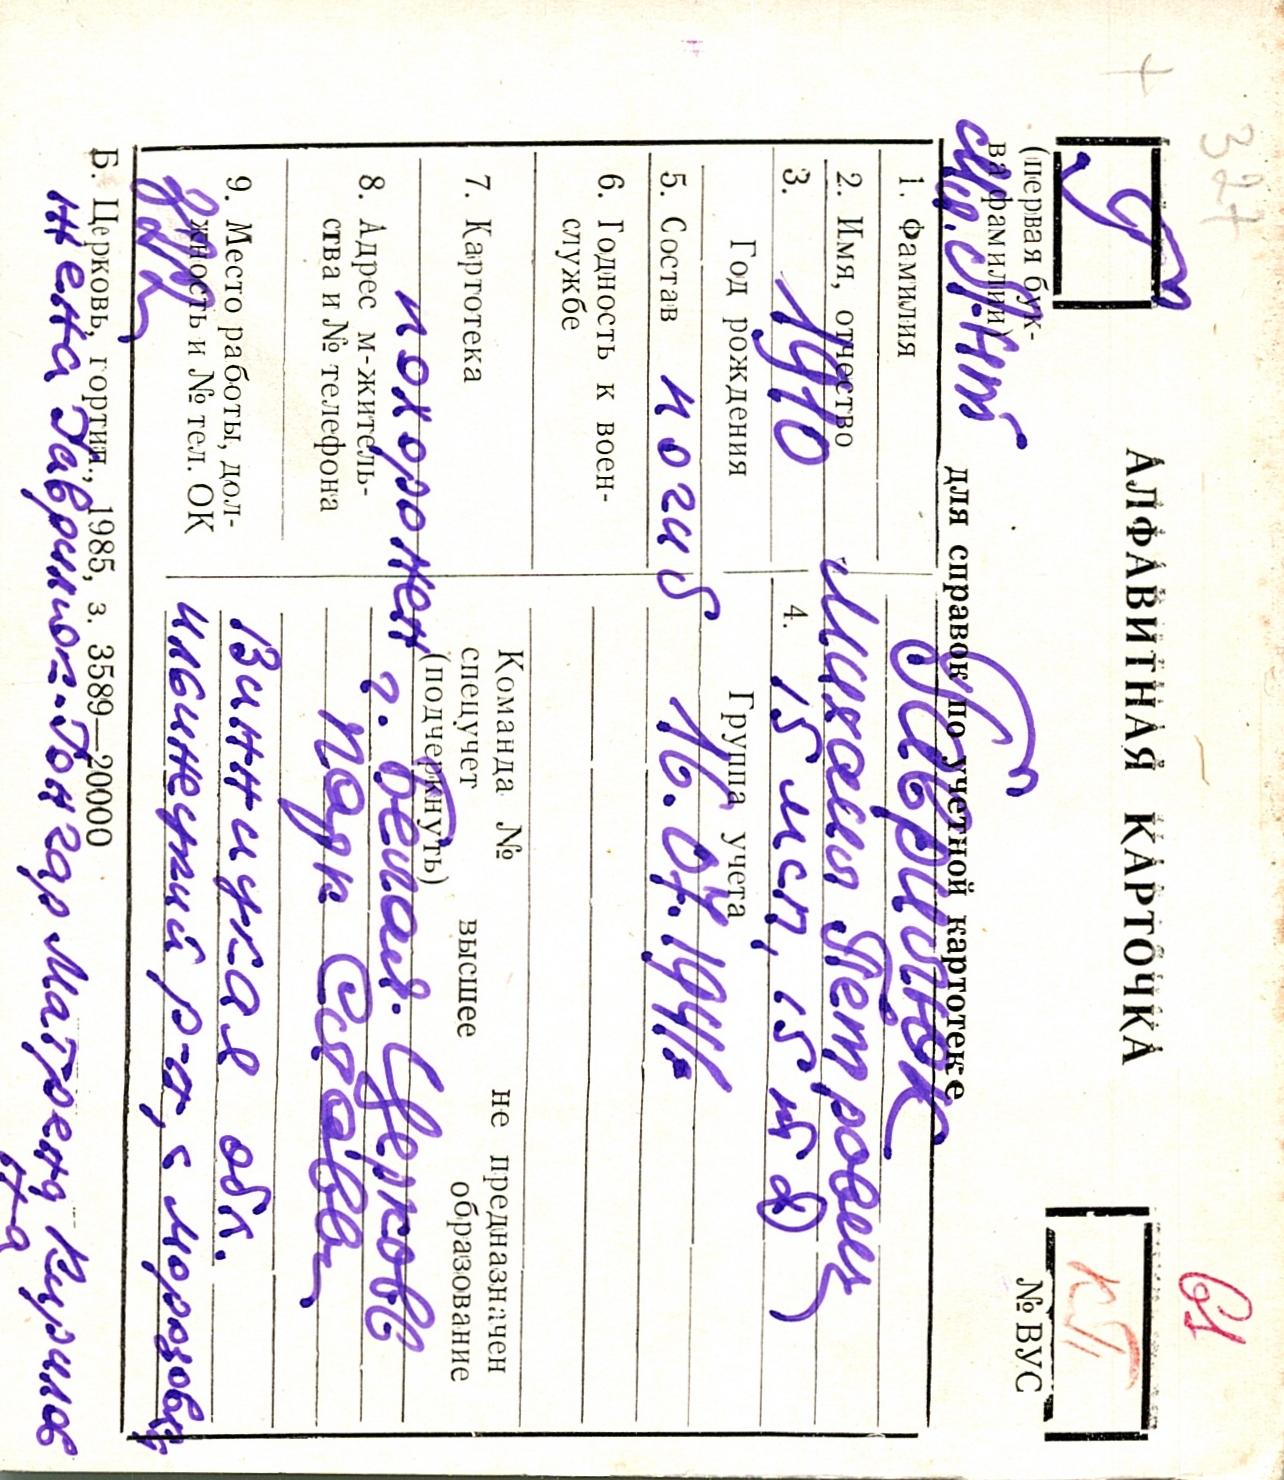 327
61
АЛФАВИТНАЯ КАРТОЧКА
Г
КП
(первая бук-
ва фамилии)
№ ВУС
для справок по учетной картотеке
1. Фамилия Гаврилюк
2. Имя, отчество Михаил Петрович
3. 1910 4. 15 мсп, 15 мсд)
Год рождения Группа учета
5. Состав погиб 16.07.1941г
6. Годность к воен-
службе
Команда № не предназначен
7. Картотека спецучет высшее образование
(подчеркнуть)
похоронен г. Белая-Церковь
8. Адрес м-житель-
ства и № телефона
парк Слава
9. Место работы, дол-
жность и № тел. ОК
Винницкая обл.
Ильинецкий р-н, с Морозовка
Б. Церковь, гортип., 1985, з. 3589—20000
жена Гаврилюк-Гончар Матрена Кирилов
на